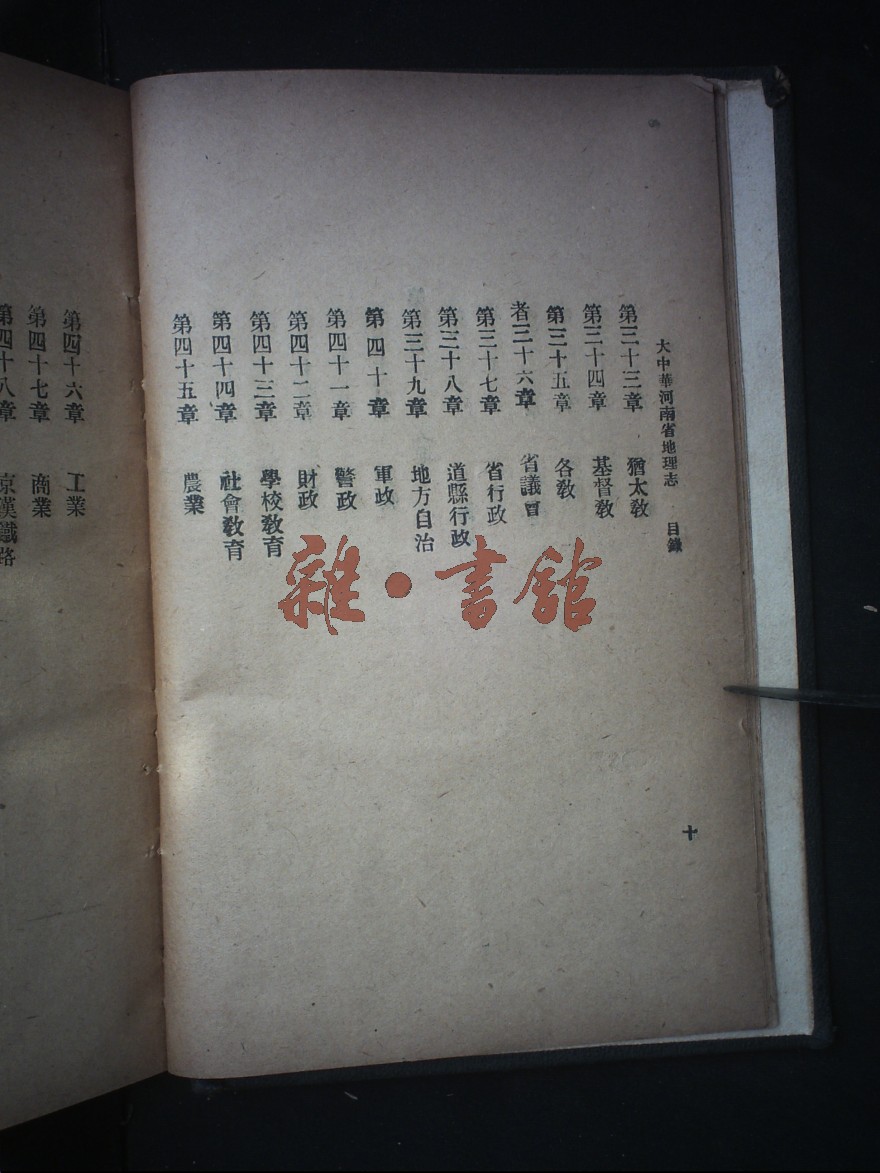 大中華河南省地理志 目錄
第三十三章 猶太敎
第三十四章 基督敎
第三十五章 各敎
者三十六章 省議會
第三十七章 省行政
第三十八章 道縣行政
第三十九章 地方自治
第四十章 軍政
第四十一章 警政
第四十二章 財政
第四十三章 學校敎育
第四十四章 社會敎育
第四十五章 農業
十
第四十六章 工業
第四十七章 商業
第四十八章 京漢鐵路
雜·書館